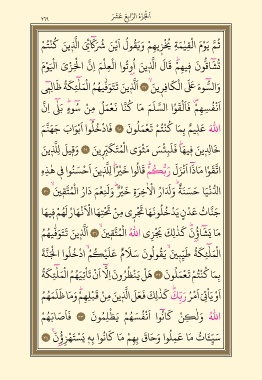 اَلْجُزْءُ الرَّابِعُ عَشَرَ
٢٦٩
ثُمَّ يَوْمَ الْقِيٰمَةِ يُخْزِيهِمْ وَيَقُولُ اَيْنَ شُرَكَٓاءِيَ الَّذِينَ كُنْتُمْ
تُشَٓاقُّونَ فِيهِمْ قَالَ الَّذِينَ اُوتُوا الْعِلْمَ اِنَّ الْخِزْيَ الْيَوْمَ
وَالسُّوءَ عَلَى الْكَافِرِينَ ﴿٢٧﴾ اَلَّذِينَ تَتَوَفّٰيهُمُ الْمَلٰٓئِكَةُ ظَالِمِٓي
اَنْفُسِهِمْ فَاَلْقَوُا السَّلَمَ مَا كُنَّا نَعْمَلُ مِنْ سُٓوءٍ بَلٰٓى اِنَّ
اللّٰهَ عَلِيمٌ بِمَا كُنْتُمْ تَعْمَلُونَ ﴿٢٨﴾ فَادْخُلُٓوا اَبْوَابَ جَهَنَّمَ
خَالِدِينَ فِيهَا فَلَبِئْسَ مَثْوَى الْمُتَكَبِّرِينَ ﴿٢٩﴾ وَقِيلَ لِلَّذِينَ
اتَّقَوْا مَاذَٓا اَنْزَلَ رَبُّكُمْ قَالُوا خَيْرًا لِلَّذِينَ اَحْسَنُوا فِي هٰذِهِ
الدُّنْيَا حَسَنَةٌ وَلَدَارُ الْاٰخِرَةِ خَيْرٌ وَلَنِعْمَ دَارُ الْمُتَّقِينَ ﴿٣٠﴾
جَنَّاتُ عَدْنٍ يَدْخُلُونَهَا تَجْرِي مِنْ تَحْتِهَا الْاَنْهَارُ لَهُمْ فِيهَا
مَا يَشَٓاؤُنَ كَذٰلِكَ يَجْزِي اللّٰهُ الْمُتَّقِينَ ﴿٣١﴾ اَلَّذِينَ تَتَوَفّٰيهُمُ
الْمَلٰٓئِكَةُ طَيِّبِينَ يَقُولُونَ سَلَامٌ عَلَيْكُمُ ادْخُلُوا الْجَنَّةَ
بِمَا كُنْتُمْ تَعْمَلُونَ ﴿٣٢﴾ هَلْ يَنْظُرُونَ اِلَّٓا اَنْ تَأْتِيَهُمُ الْمَلٰٓئِكَةُ
اَوْ يَأْتِيَ اَمْرُ رَبِّكَ كَذٰلِكَ فَعَلَ الَّذِينَ مِنْ قَبْلِهِمْ وَمَا ظَلَمَهُمُ
اللّٰهُ وَلٰكِنْ كَانُٓوا اَنْفُسَهُمْ يَظْلِمُونَ ﴿٣٣﴾ فَاَصَابَهُمْ
سَيِّـَٔاتُ مَا عَمِلُوا وَحَاقَ بِهِمْ مَا كَانُوا بِهِ يَسْتَهْزِؤُنَ ﴿٣٤﴾